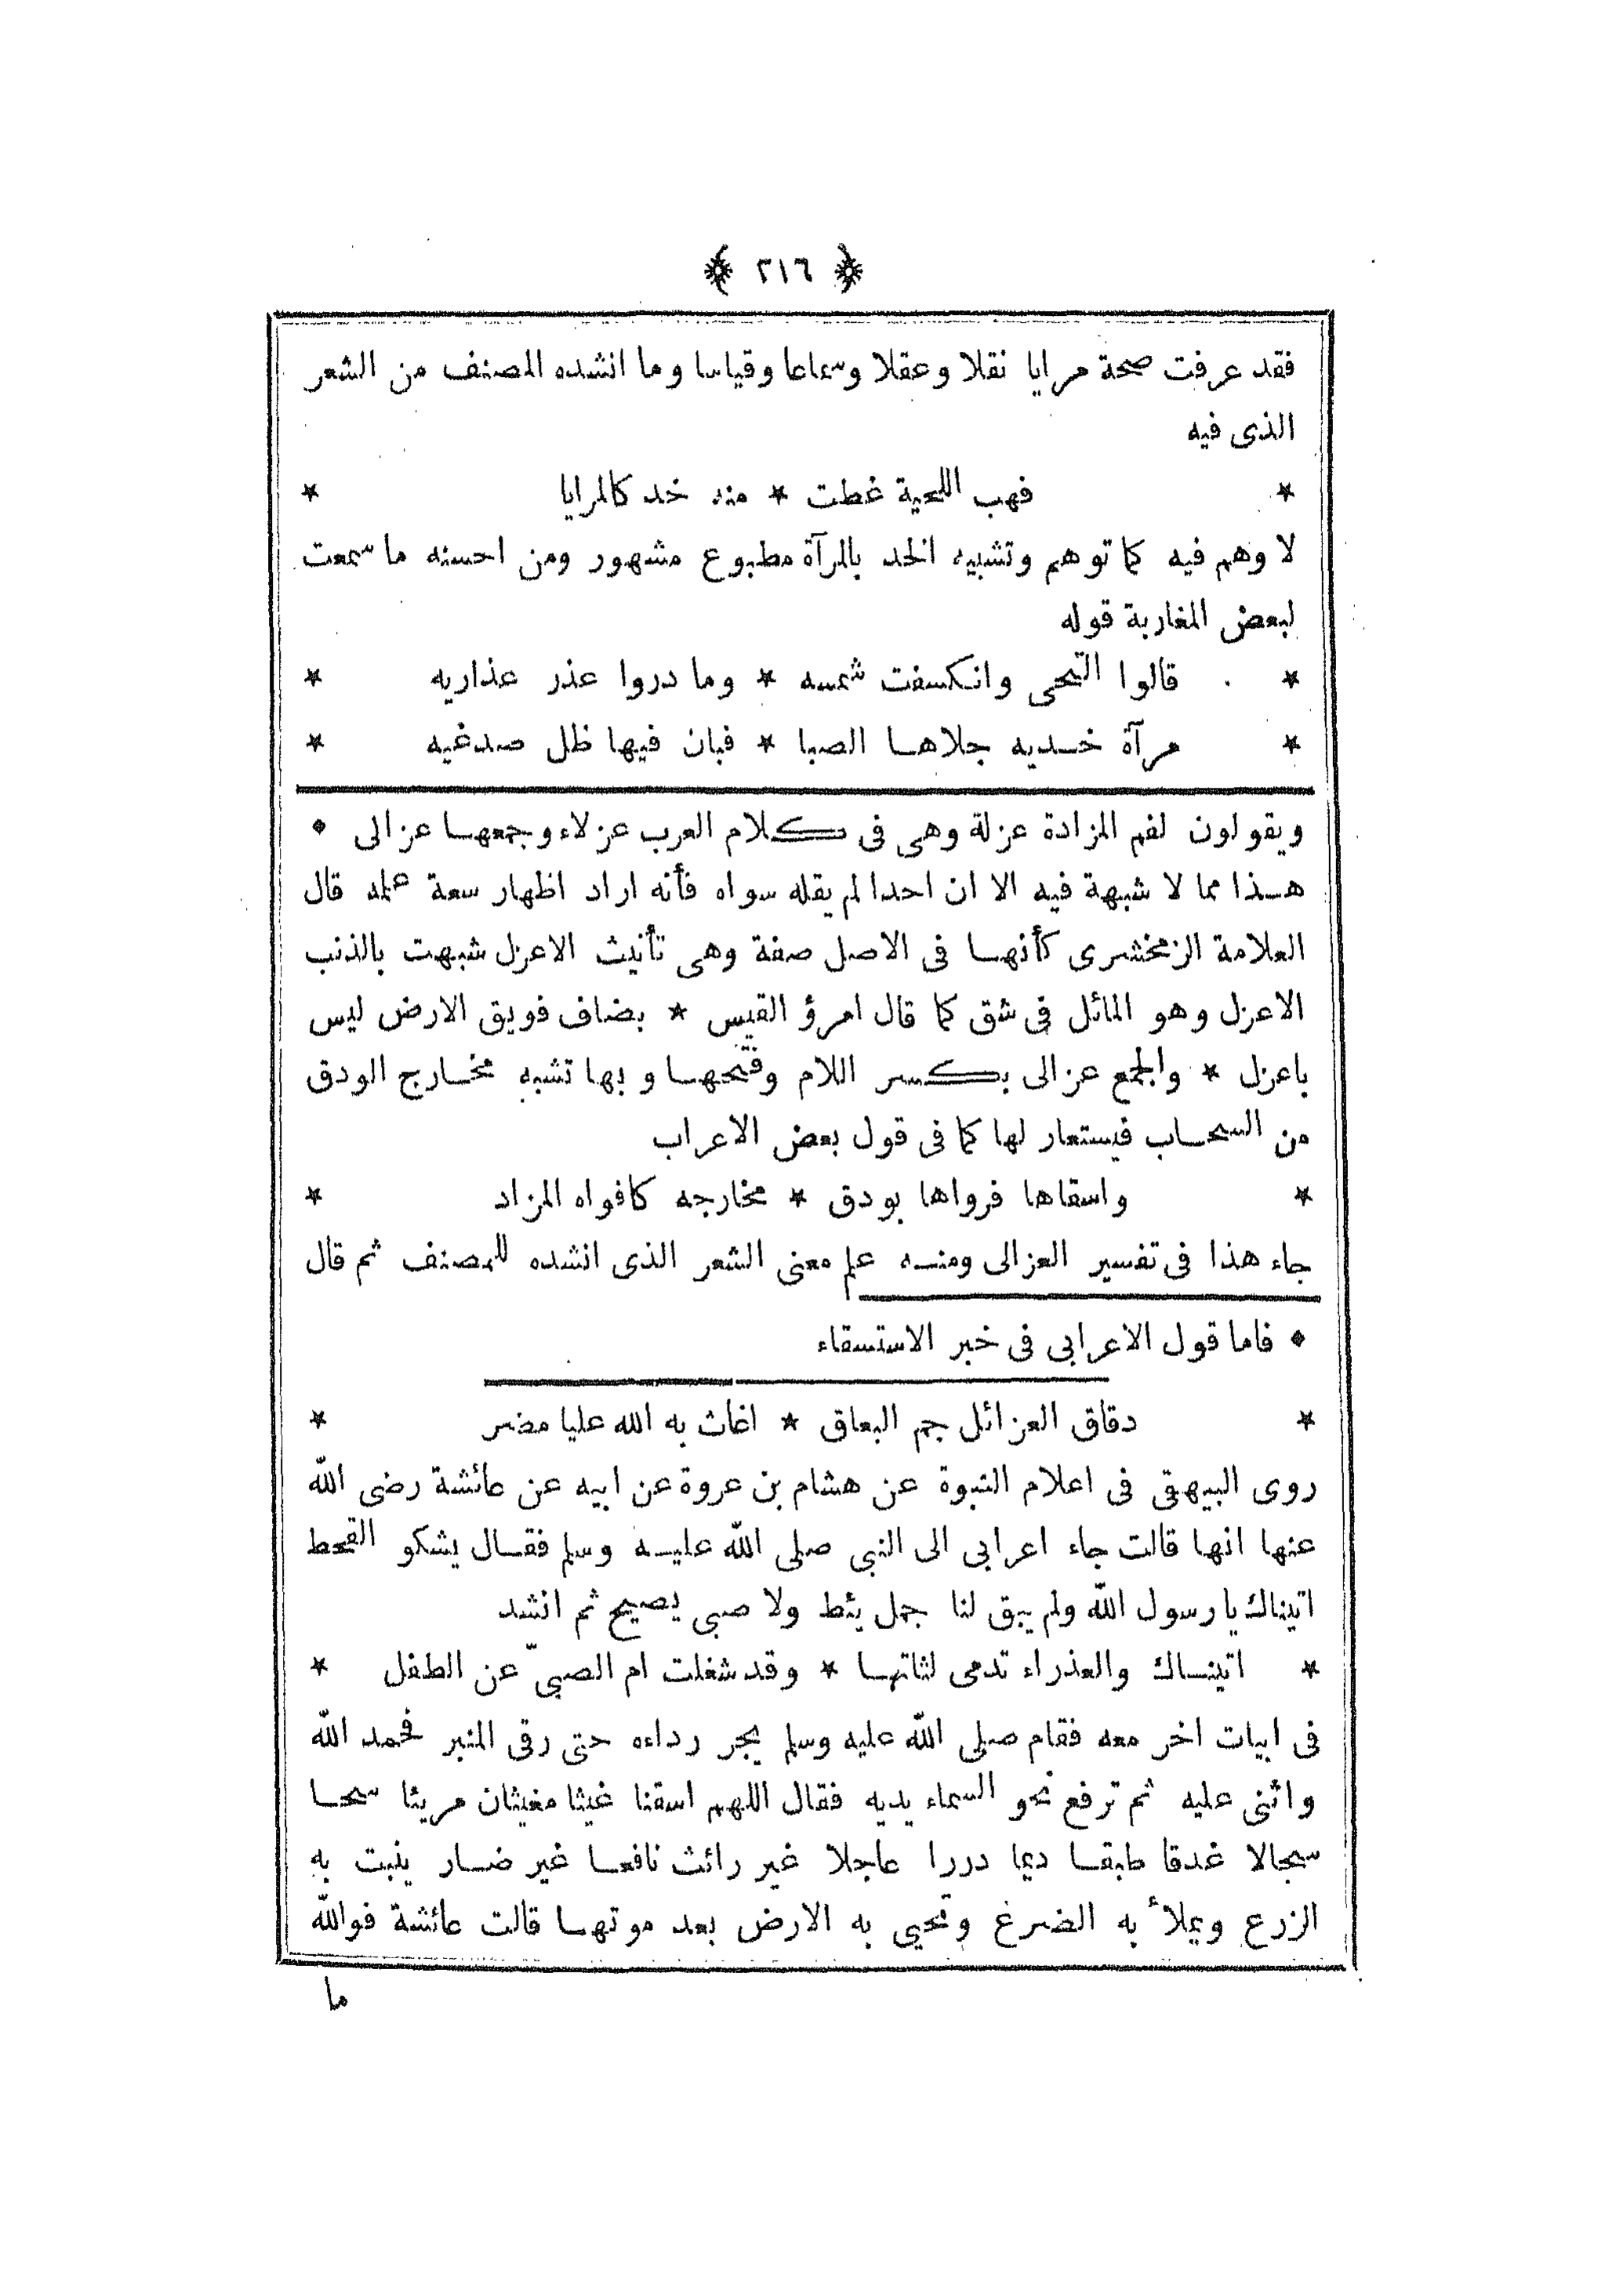 ﴿ ٢١٦ ﴾
فقد عرفت صحة مرايا نقلا وعقلا وسماعا وقياسا وما انشده المصنف من الشعر
الذى فيه
* فهب اللحية غطت * منه خد كالمرايا *
لا وهم فيه كما توهم وتشبيه الخد بالمرآة مطبوع مشهور ومن احسنه ما سمعت
لبعض المغاربة قوله
* قالوا التحى وانكسفت شمسه * وما دروا عذر عذاريه *
* مرآة خديه جلاها الصبا * فبان فيها ظل صدغيه *
ويقولون لفم المزادة عزلة وهى فى كلام العرب عزلاء وجمعها عزالى •
هذا مما لا شبهة فيه الا ان احدا لم يقله سواه فأنه اراد اظهار سعة علمه قال
العلامة الزمخشرى كأنها فى الاصل صفة وهى تأنيث الاعزل شبهت بالذنب
الاعزل وهو المائل فى شق كما قال امرؤ القيس * بضاف فويق الارض ليس
باعزل * والجمع عزالى بكسر اللام وفتحها وبها تشبه مخارج الودق
من السحاب فيستعار لها كما فى قول بعض الاعراب
* واسقاها فرواها بودق * مخارجه كافواه المزاد *
جاء هذا فى تفسير العزالى ومنه علم معنى الشعر الذى انشده للمصنف ثم قال
• فاما قول الاعرابى فى خبر الاستسقاء
* دقاق العزائل جم البعاق * اغاث به الله عليا مضر *
روى البيهقى فى اعلام النبوة عن هشام بن عروة عن ابيه عن عائشة رضى الله
عنها انها قالت جاء اعرابى الى النبى صلى الله عليه وسلم فقال يشكو القحط
اتيناك يا رسول الله ولم يبق لنا جمل يئط ولا صبى يصيح ثم انشد
* اتيناك والعذراء تدمى لثاتها * وقد شغلت ام الصبىّ عن الطفل *
فى ابيات اخر معه فقام صلى الله عليه وسلم يجر رداءه حتى رقى المنبر فحمد الله
واثنى عليه ثم ترفع نحو السماء يديه فقال اللهم اسقنا غيثا مغيثان مريئا سحا
سجالا غدقا طبقا ديما دررا عاجلا غير رائث نافعا غير ضار ينبت به
الزرع ويملأ به الضرغ وتحيى به الارض بعد موتها قالت عائشة فوالله
ما